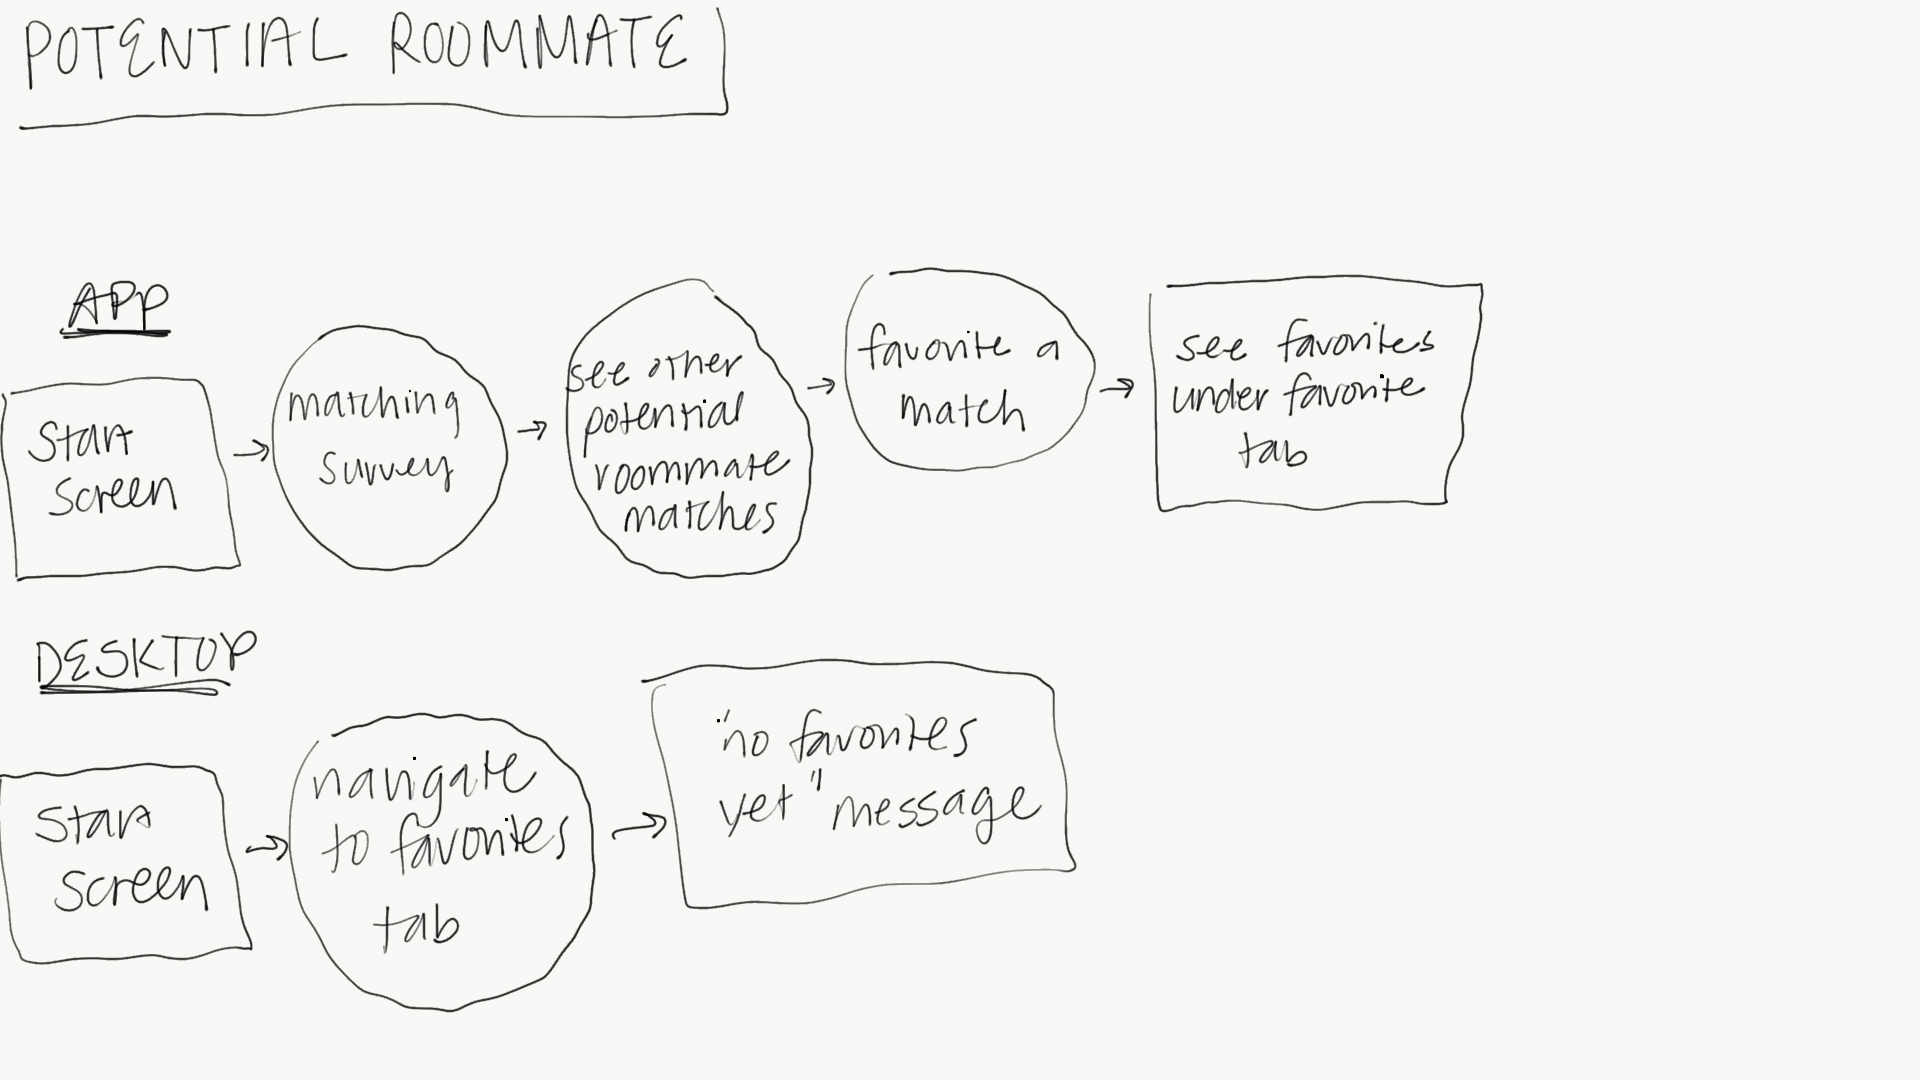 POTENTIAL ROOMMATE
APP
Start
Screen
matching
survey
see other
potential
roommate
matches
favorite a
match
see favorites
under favorite
tab
DESKTOP
Start
Screen
navigate
to favorites
tab
"no favorites
yet" message